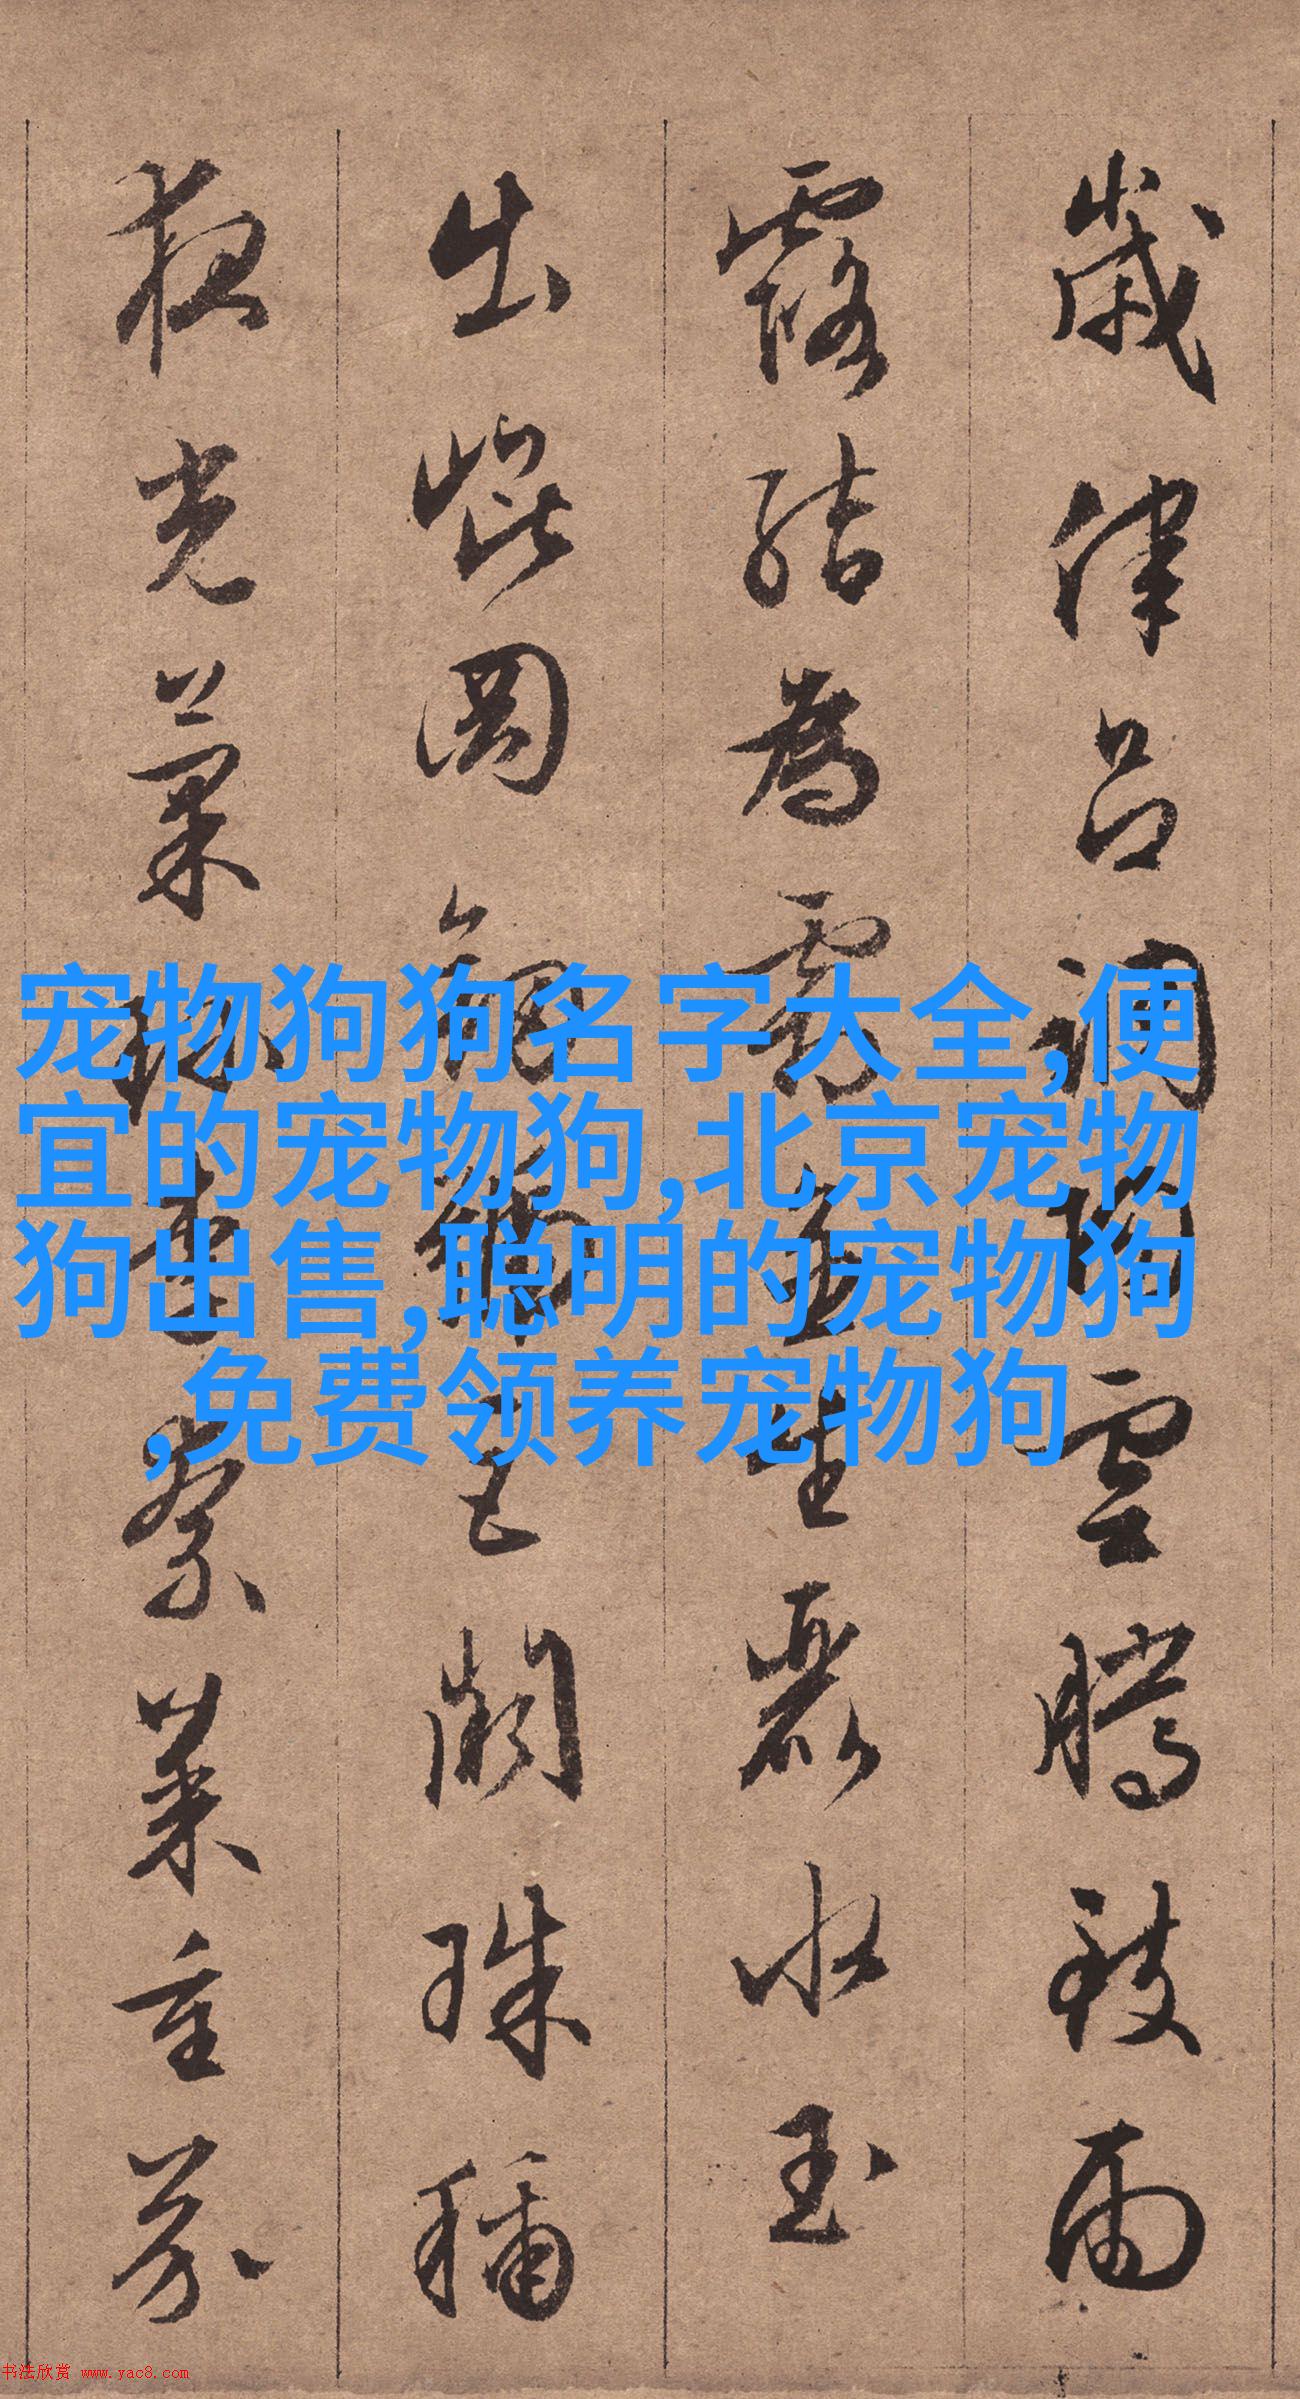 歲律呂調陽雲騰致雨
露結為霜金生麗水玉
出崐岡劍號巨闕珠稱
夜光菓珍李柰菜重芥
宠物狗狗名字大全,便
宜的宠物狗,北京宠物
狗出售,聪明的宠物狗
,免费领养宠物狗
书法欣赏 www.yac8.com